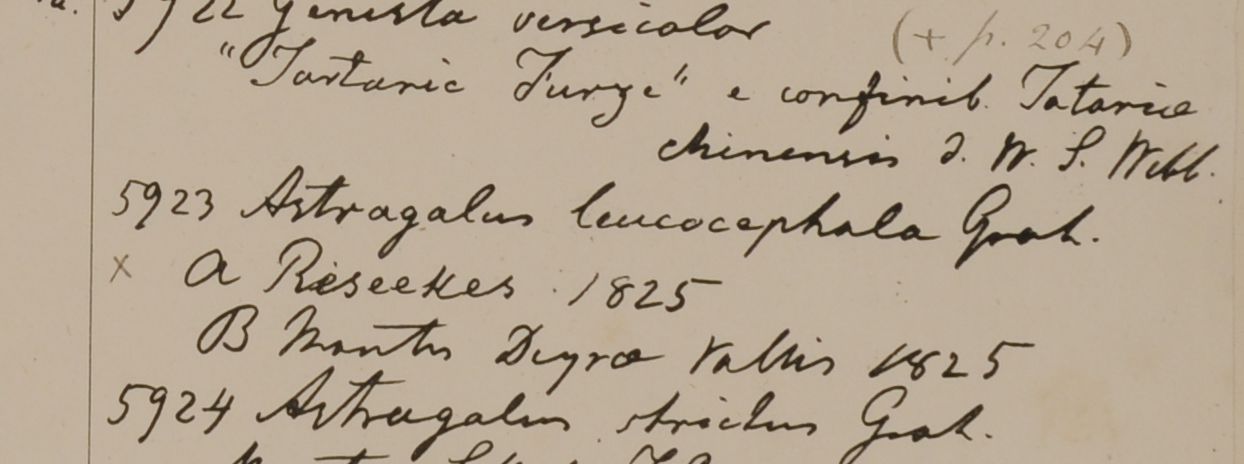 5922 Genista versicolor (+ p. 204)
"Tartaric Furze" e confinib. Tatariæ
chinensis d. W. S. Webb.
5923 Astragalus leucocephala Grah.
x A Riseekes 1825
B Montes Deyræ Vallis 1825
5924 Astragalus strictus Grah.